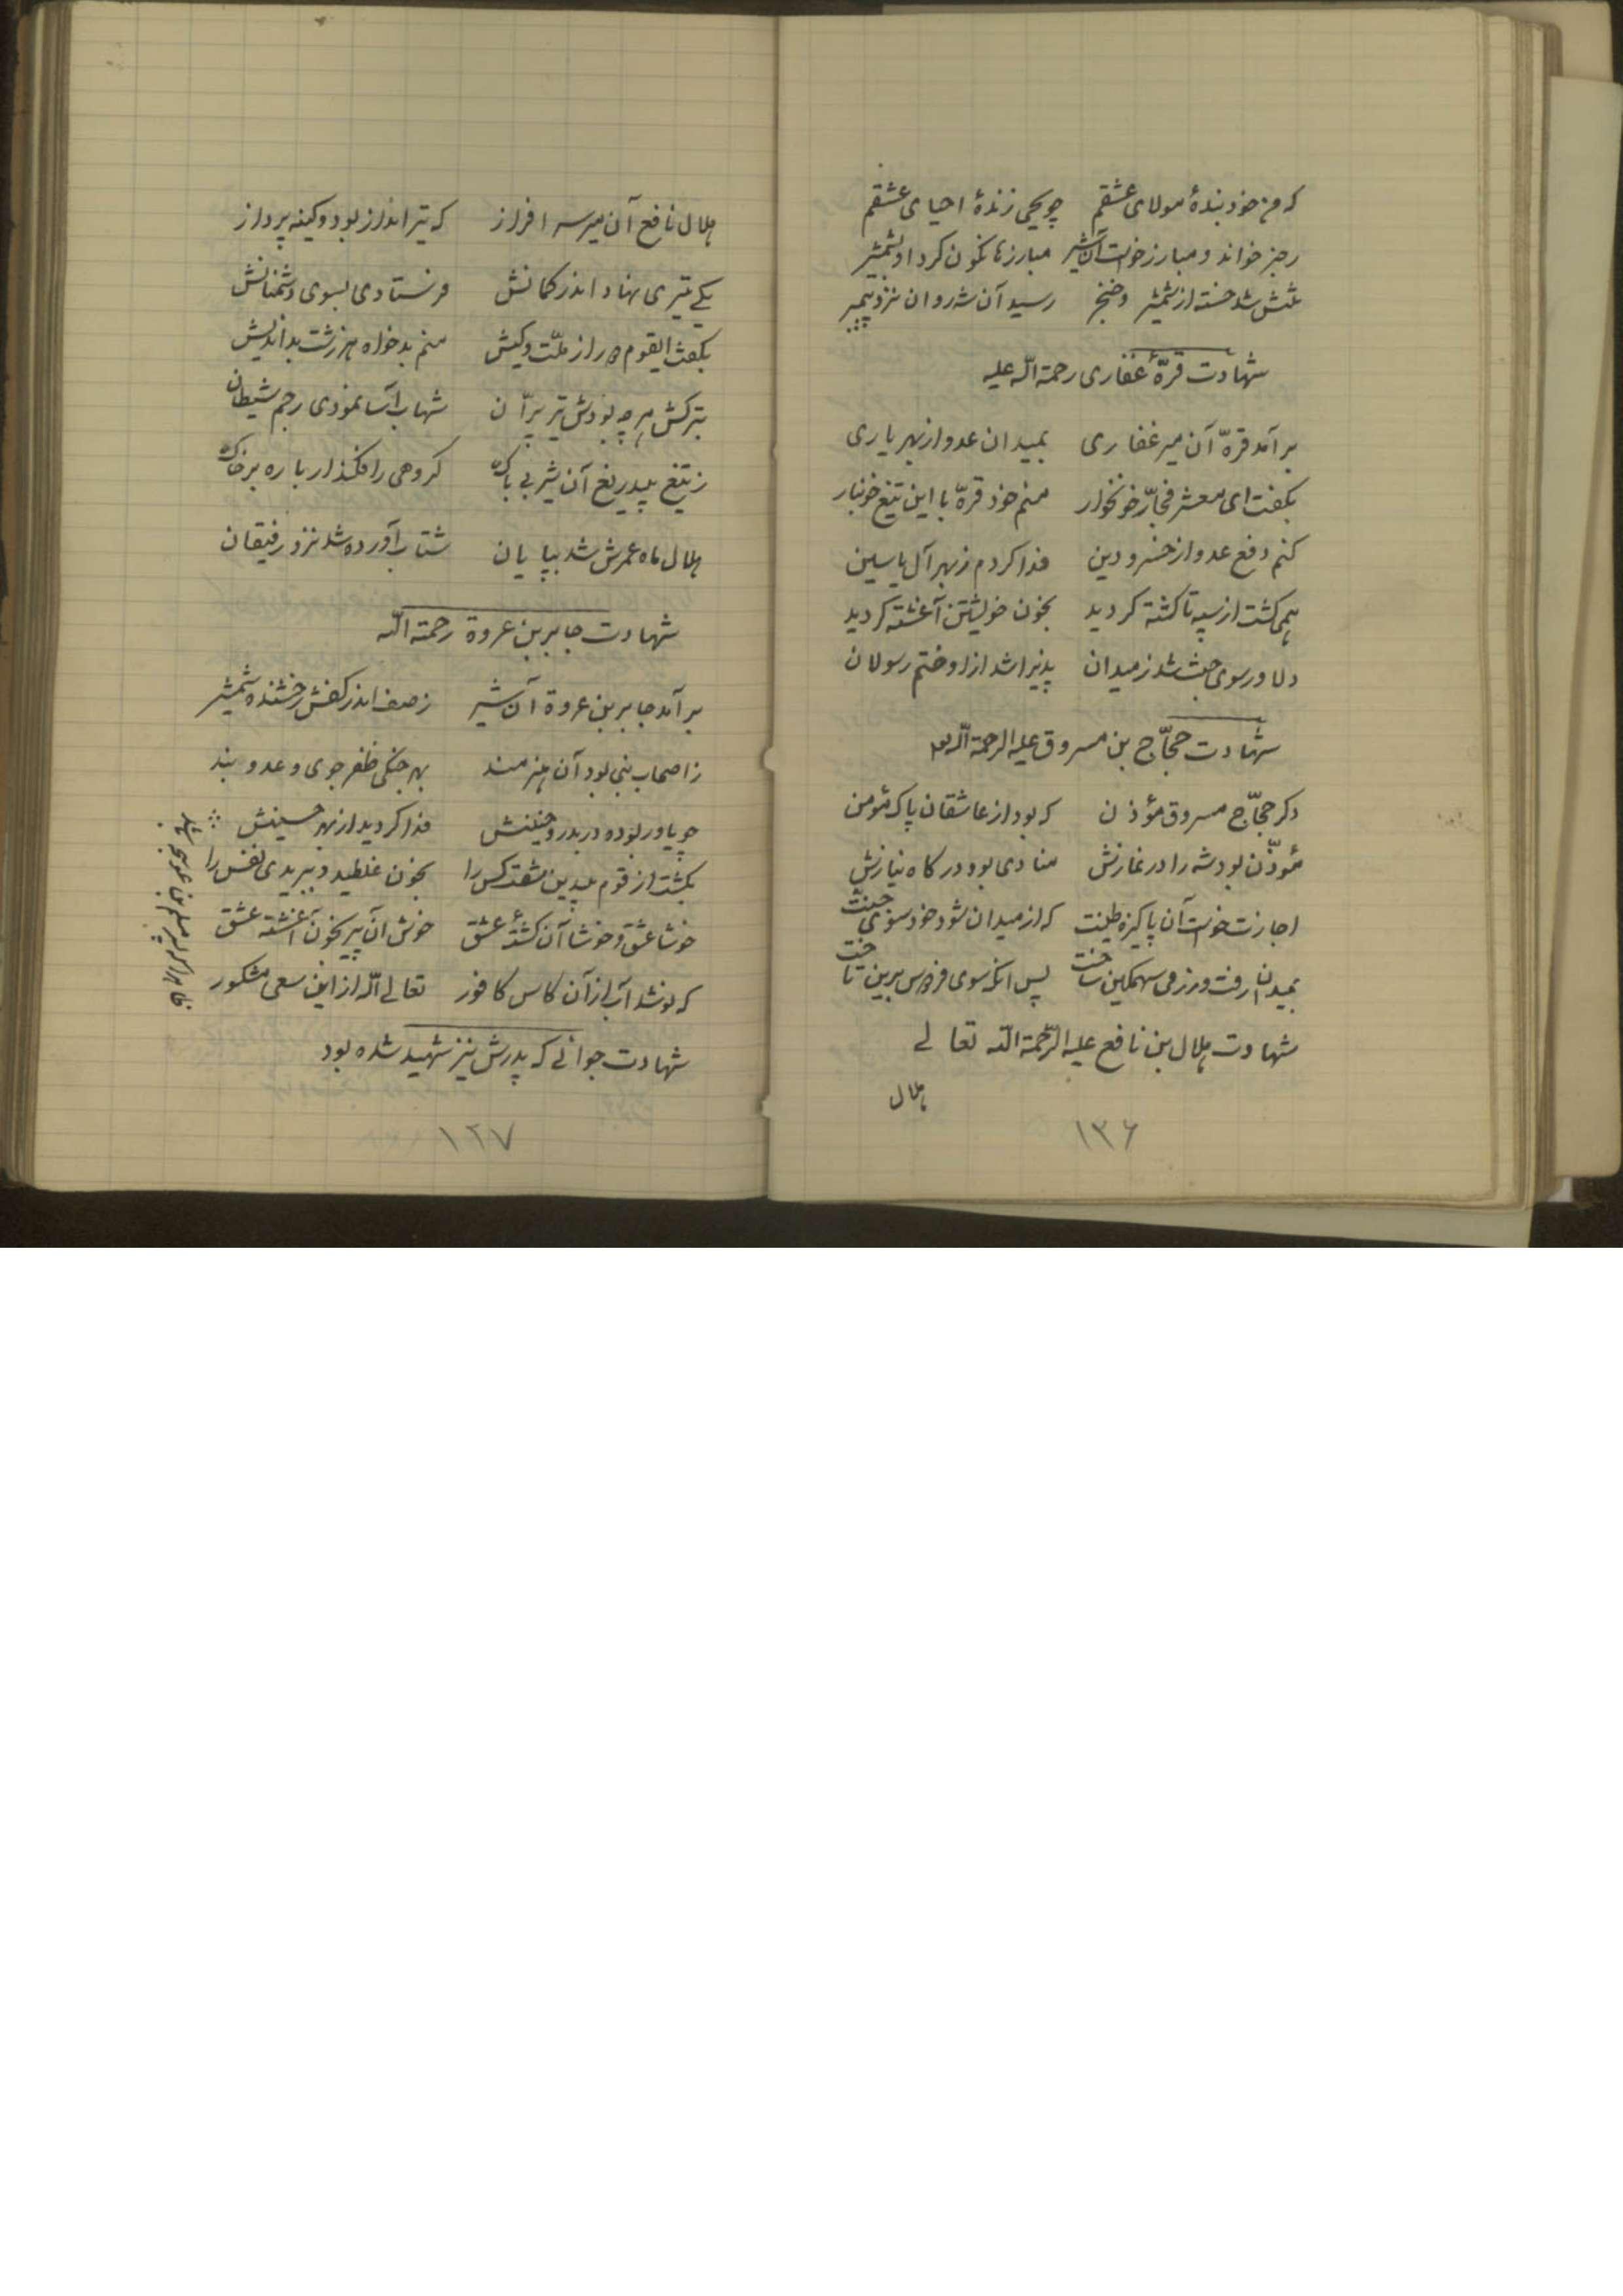 که من خود بندهٔ مولای عشقم چو یحیی زندهٔ احیای عشقم
رجز خواند و مبارز خواست آن شیر مبارزها نگون کرد او بشمشیر
تنش شد خسته از شمشیر و خنجر رسید آن شه روان نزد پیمبر
شهادت قرّهٔ غفاری رحمة الله علیه
بر آمد قرّه آن میر غفاری بمیدان عدو از بهر یاری
بکفت ای معشر فجّار خونخوار منم خود قرّه با این تیغ خونبار
کنم دفع عدو از خسرو دین فدا کردم ز بهر آل یاسین
همی کشت از سپه تا کشته کردید بخون خویشتن آغشته کردید
دلاور سوی جنّت شد ز میدان پذیرا شد از او ختم رسولان
شهادت حجّاج بن مسروق علیه الرحمة الله
دکر حجّاج مسروق مؤذن که بود از عاشقان پاک مؤمن
مؤذّن بود شه را در نمازش منادی بود در کاه نیازش
اجازت خواست آن پاکیزه طینت که از میدان شود خود سوی جنّت
بمیدان رفت و رزمی سهمکین ساخت پس انکه سوی فردوس برین تاخت
شهادت هلال بن نافع علیه الرّحمة الله تعالی
هلال
۱۳۶
هلال نافع آن میر سر افراز که تیر انداز بود و کینه پرداز
یکی تیری نهاد اندر کمانش فرستادی بسوی دشمنانش
بکفت ایقوم دور از ملّت و کیش منم بدخواه هر زشت بد اندیش
بترکش هر چه بودش تیر پرّان شهاب آسا نمودی رجم شیطان
ز تیغ بیدریغ آن شیر بی باک کروهی را فکند از باره بر خاک
هلال ماه عمرش شد بپایان شتاب آورده شد نزد رفیقان
شهادت جابر بن عروة رحمة الله
بر آمد جابر بن عروة آن شیر ز صف اندر کفش رخشنده شمشیر
ز اصحاب نبی بود آن هنرمند بهر جنکی ظفر جوی و عدو بند
چو یاور بوده در بدر و حنینش فدا کردید از بهر حسینش
بکشت از قوم بیدین شصت کس را بخون غلطید و ببریدی نفس را
خوشا عشق و خوشا آن کشتهٔ عشق خوش آن پیر بخون آغشته عشق
که نوشد آب از آن کاس کافور تعالی الله از این سعی مشکور
شهادت جوانی که پدرش نیز شهید شده بود
پسر مسلم بن عوسجه
۱۲۷